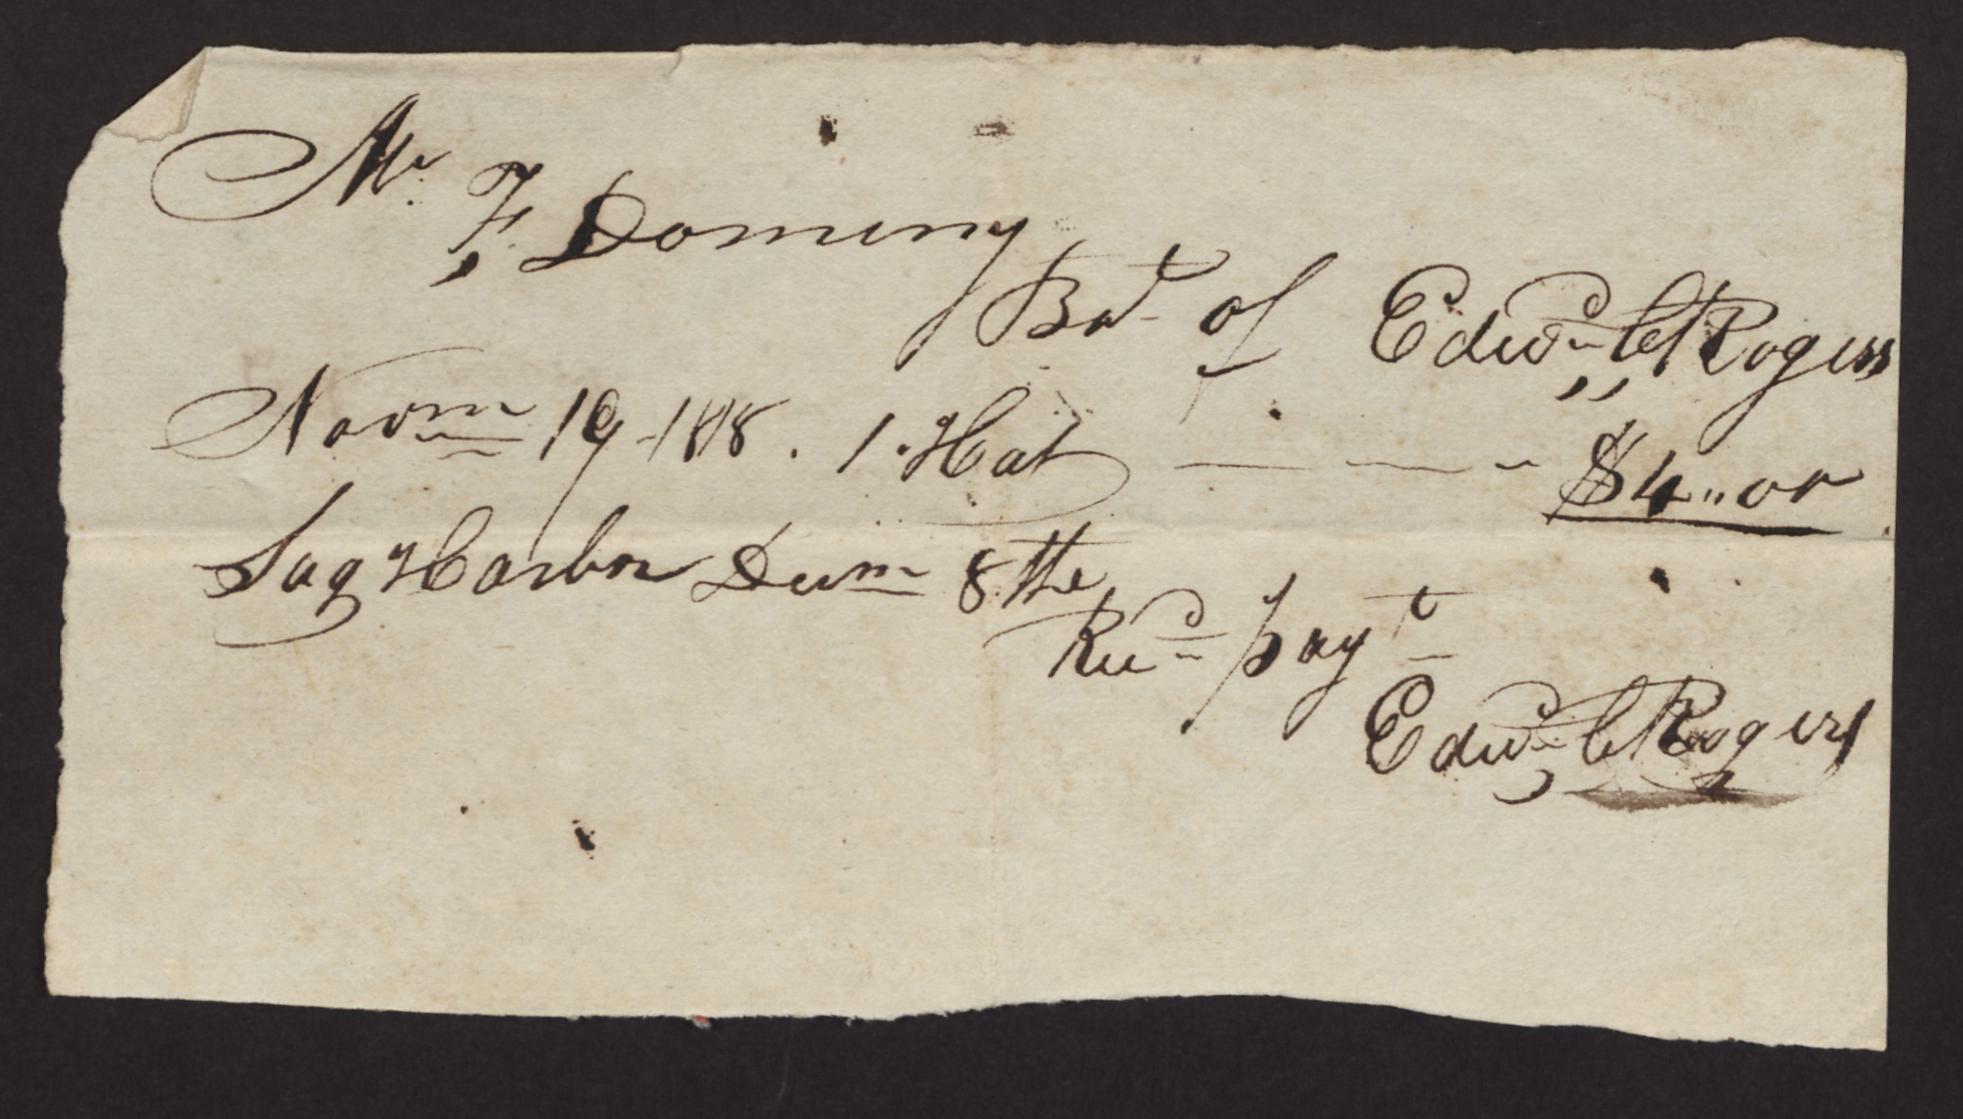 Mr. F. Dominy
Bot of Edwd C Rogers
Novm 19 - 1818 . 1 . Hat — — - $4 " 00
Sag Harbor Decm 8 the
Recd payt
Edwd C Rogers